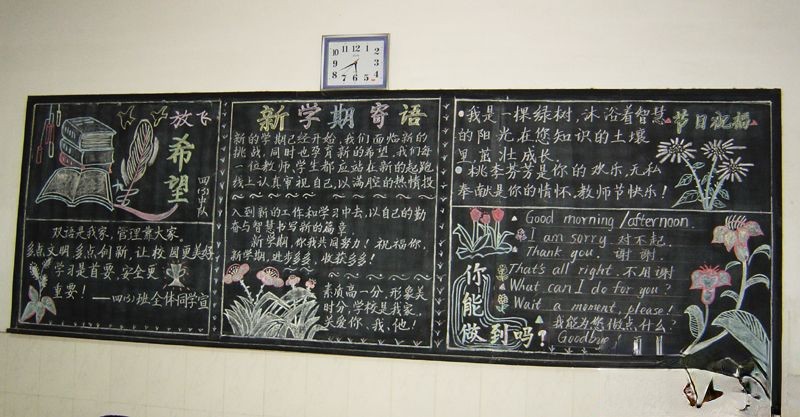 放飞
希望
四(3)中队
双语是我家,管理靠大家。
多点文明,多点创新,让校园更美好
学习是首要,安全更
重要!
——四(3)班全体同学宣
新学期寄语
新的学期已经开始,我们面临新的
挑战,同时也孕育新的希望,我们每
一位教师,学生都应站在新的起跑
线上认真审视自己,以满腔的热情投
入到新的工作和学习中去,以自己的勤
奋与智慧书写新的篇章
新学期,你我共同努力!祝福你,
新学期,进步多多,收获多多!
素质高一分,形象美
时分,学校是我家,
关爱你、我、他!
节日祝福
我是一棵绿树,沐浴着智慧
的阳光在您知识的土壤
里,茁壮成长.
桃李芬芳是你的欢乐,无私
奉献是您的情怀,教师节快乐!
你能做到吗?
Good morning/afternoon.
I am sorry 对不起.
Thank you. 谢谢.
That's all right. 不用谢
What can I do for you?
Wait a moment, please!
我能为您做点什么?
Goodbye!
12 1 2 3 4 5 6 7 8 9 10 11